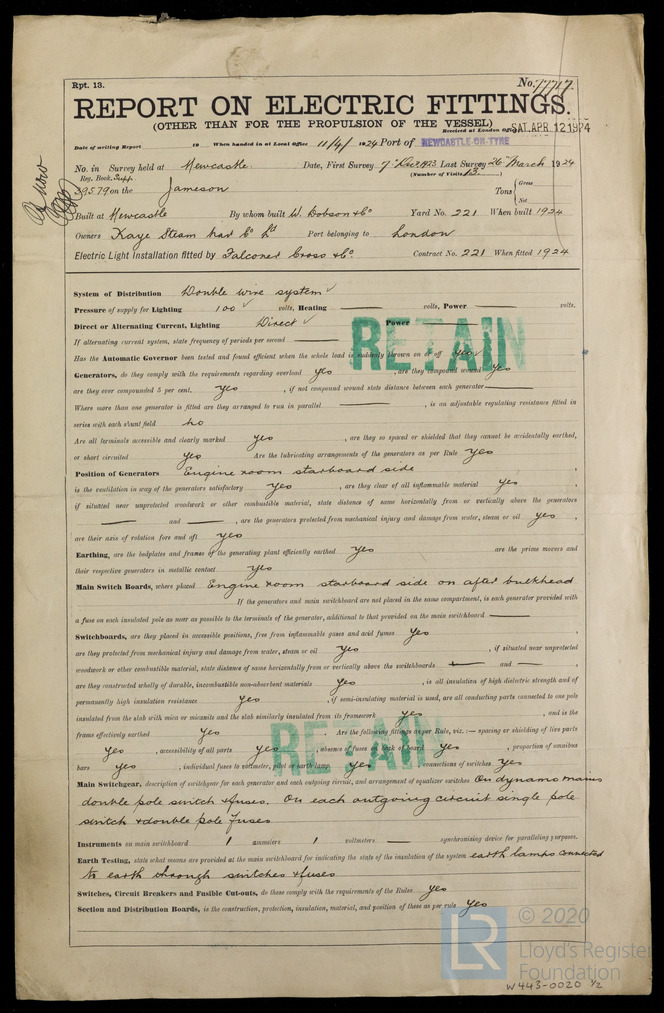 Rpt. 13.
No. 77717.
REPORT ON ELECTRIC FITTINGS.
(OTHER THAN FOR THE PROPULSION OF THE VESSEL)
Received at London Office SAT. APR. 12 1924
Date of writing Report 19 When handed in at Local Office 11/4/ 1924 Port of NEWCASTLE-ON-TYNE
No. in Survey held at Newcastle. Date, First Survey 7th Dec 1923 Last Survey 26th March 1924
Reg. Book. Supp. (Number of Visits 13.)
39579 on the Jameson Tons { Gross Net
Built at Newcastle By whom built W. Dobson & Co Yard No. 221 When built 1924
Owners Kaye Steam Nav Co Ld Port belonging to London
Electric Light Installation fitted by Falconer Cross & Co. Contract No. 221 When fitted 1924
System of Distribution Double wire system
Pressure of supply for Lighting 100 volts, Heating — volts, Power — volts.
Direct or Alternating Current, Lighting Direct Power
RETAIN
If alternating current system, state frequency of periods per second —
Has the Automatic Governor been tested and found efficient when the whole load is suddenly thrown on or off yes
Generators, do they comply with the requirements regarding overload yes , are they compound wound yes
are they over compounded 5 per cent. yes , if not compound wound state distance between each generator —
Where more than one generator is fitted are they arranged to run in parallel — , is an adjustable regulating resistance fitted in
series with each shunt field no
Are all terminals accessible and clearly marked yes , are they so spaced or shielded that they cannot be accidentally earthed,
or short circuited yes Are the lubricating arrangements of the generators as per Rule yes
Position of Generators Engine room starboard side
is the ventilation in way of the generators satisfactory yes , are they clear of all inflammable material yes ,
if situated near unprotected woodwork or other combustible material, state distance of same horizontally from or vertically above the generators
— and — , are the generators protected from mechanical injury and damage from water, steam or oil yes ,
are their axis of rotation fore and aft yes
Earthing, are the bedplates and frames of the generating plant efficiently earthed yes are the prime movers and
their respective generators in metallic contact yes
Main Switch Boards, where placed Engine room starboard side on after bulkhead
If the generators and main switchboard are not placed in the same compartment, is each generator provided with
a fuse on each insulated pole as near as possible to the terminals of the generator, additional to that provided on the main switchboard —
Switchboards, are they placed in accessible positions, free from inflammable gases and acid fumes yes ,
are they protected from mechanical injury and damage from water, steam or oil yes , if situated near unprotected
woodwork or other combustible material, state distance of same horizontally from or vertically above the switchboards — and —
are they constructed wholly of durable, incombustible non-absorbent materials yes , is all insulation of high dielectric strength and of
permanently high insulation resistance yes , if semi-insulating material is used, are all conducting parts connected to one pole
insulated from the slab with mica or micanite and the slab similarly insulated from its framework yes , and is the
frame effectively earthed yes . Are the following fittings as per Rule, viz.:— spacing or shielding of live parts
yes , accessibility of all parts yes , absence of fuses on back of board yes , proportion of omnibus
RETAIN
bars yes , individual fuses to voltmeter, pilot or earth lamp yes , connections of switches yes
Main Switchgear, description of switchgear for each generator and each outgoing circuit, and arrangement of equalizer switches On dynamo mains
double pole switch & fuses. On each outgoing circuit single pole
switch & double pole fuses
Instruments on main switchboard 1 ammeters 1 voltmeters — synchronizing device for paralleling purposes.
Earth Testing, state what means are provided at the main switchboard for indicating the state of the insulation of the system earth lamps connected
to earth through switches & fuses
Switches, Circuit Breakers and Fusible Cut-outs, do these comply with the requirements of the Rules yes
Section and Distribution Boards, is the construction, protection, insulation, material, and position of these as per rule yes
LR
© 2020
Lloyd's Register
Foundation
W443-0020 1/2